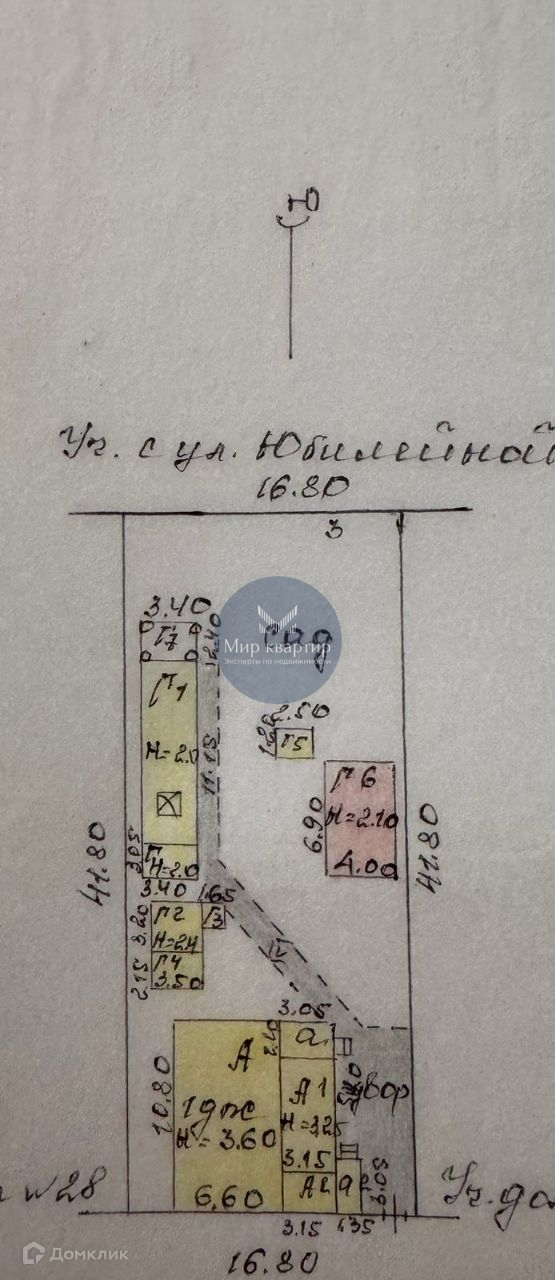 Ю
Уч. с ул. Юбилейной
16.80
3
3.40
Г7
2.40
сад
Мир квартир
Эксперты по недвижимости
Г1
H=2.0
11.15
2.50
Г5
Г6
H=2.10
6.90
4.00
41.80
41.80
3.05
Г
H=2.0
3.40
1.65
Г2
Г3
3.20
H=2.4
Г4
2.15
3.50
IV
3.05
а1
2.40
А
10.80
1 дж
H=3.60
А1
H=3,25
двор
3.15
6.60
А2
а2
3.05
№28
Уч. до
3.15
1.35
16.80
Домклик